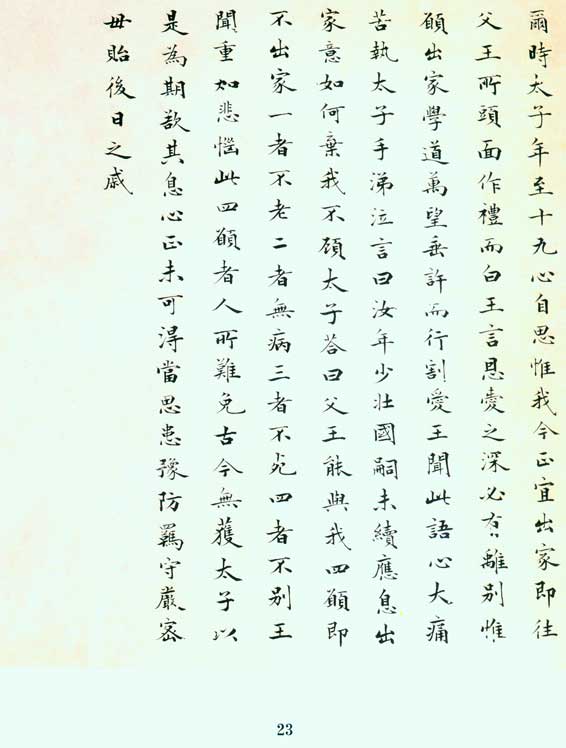 爾時太子年至十九心自思惟我今正宜出家即往
父王所頭面作禮而白王言恩愛之深必有離別惟
願出家學道萬望垂許而行割愛王聞此語心大痛
苦執太子手涕泣言曰汝年少壯國嗣未續應息出
家意如何棄我不顧太子答曰父王能與我四願即
不出家一者不老二者無病三者不死四者不別王
聞重加悲惱此四願者人所難免古今無獲太子以
是為期欲其息心正未可得當思患豫防羈守嚴密
毋貽後日之戚
23